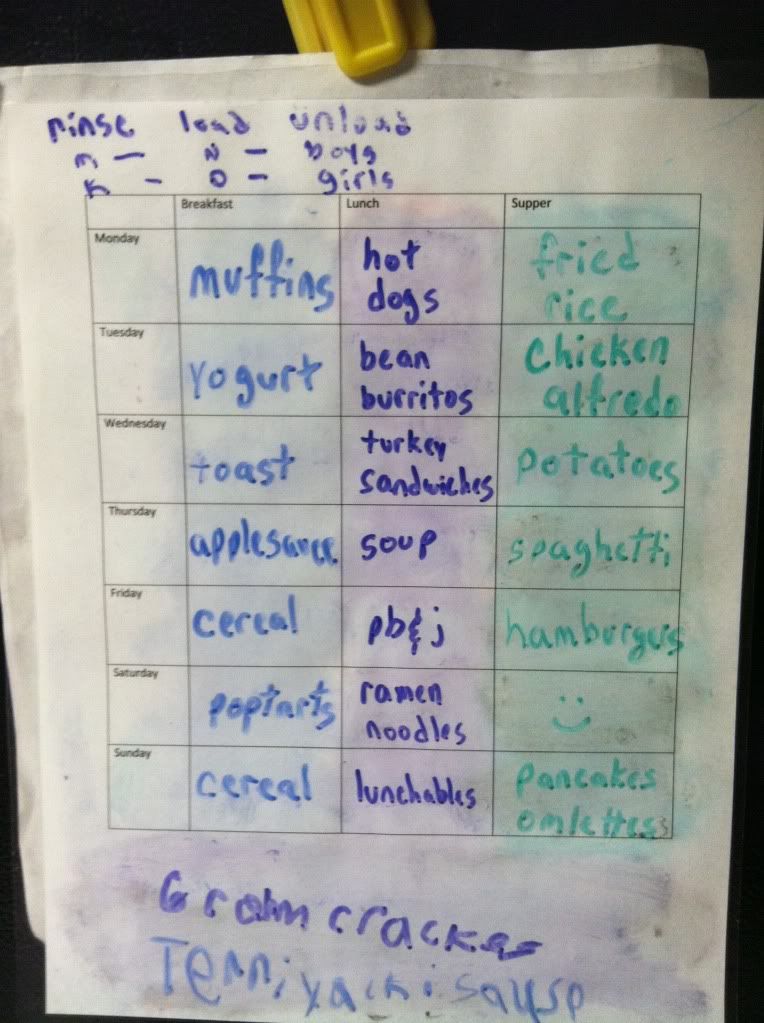 rinse load unload
m — N — boys
K - O — girls
Breakfast Lunch Supper
Monday muffins hot dogs fried rice
Tuesday yogurt bean burritos chicken alfredo
Wednesday toast turkey sandwiches potatoes
Thursday applesauce soup spaghetti
Friday cereal pb&j hamburgers
Saturday poptarts ramen noodles
Sunday cereal lunchables pancakes omlettes
Grahm crackers
Terriyacki sauysp